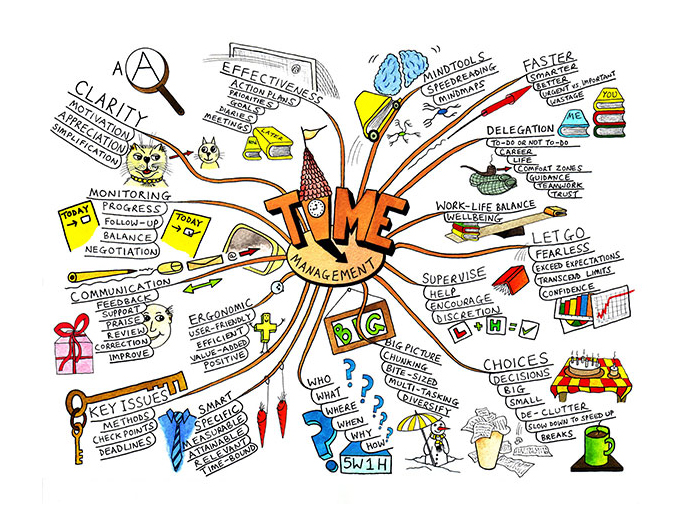 TIME
MANAGEMENT
A A
CLARITY
MOTIVATION
APPRECIATION
SIMPLIFICATION
EFFECTIVENESS
ACTION PLANS
PRIORITIES
GOALS
DIARIES
MEETINGS
NOW
LATER
MINDTOOLS
SPEEDREADING
MINDMAPS
FASTER
SMARTER
BETTER
URGENT VS. IMPORTANT
WASTAGE
YOU
ME
DELEGATION
TO-DO OR NOT TO-DO
CAREER
LIFE
COMFORT ZONES
GUIDANCE
TEAMWORK
TRUST
WORK-LIFE BALANCE
WELLBEING
LET GO
FEARLESS
EXCEED EXPECTATIONS
TRANSCEND LIMITS
CONFIDENCE
SUPERVISE
HELP
ENCOURAGE
DISCRETION
L + H =
CHOICES
DECISIONS
BIG
SMALL
DE-CLUTTER
SLOW DOWN TO SPEED UP
BREAKS
BIG
BIG PICTURE
CHUNKING
BITE-SIZED
MULTI-TASKING
DIVERSIFY
WHO
WHAT
WHERE
WHEN
WHY
HOW
5W1H
SMART
SPECIFIC
MEASURABLE
ATTAINABLE
RELEVANT
TIME-BOUND
KEY ISSUES
METHODS
CHECK POINTS
DEADLINES
ERGONOMIC
USER-FRIENDLY
EFFICIENT
VALUE-ADDED
POSITIVE
COMMUNICATION
FEEDBACK
SUPPORT
PRAISE
REVIEW
CORRECTION
IMPROVE
MONITORING
PROGRESS
FOLLOW-UP
BALANCE
NEGOTIATION
TODAY
TODAY